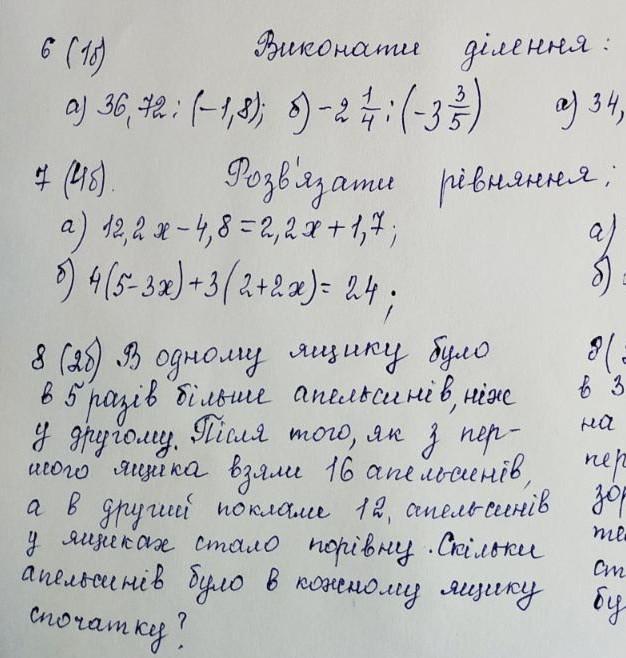 6 (1б) Виконати ділення:
а) 36,72 : (-1,8); б) -2 1/4 : (-3 3/5) а) 34,
7 (4б). Розв'язати рівняння;
а) 12,2х-4,8=2,2х+1,7; а)
б) 4(5-3х)+3(2+2х)= 24; б)
8 (2б) В одному ящику було 8(
в 5 разів більше апельсинів, ніж в 3
у другому. Після того, як з пер- на
шого ящика взяли 16 апельсинів, пер
а в другий поклали 12, апельсинів зор
у ящиках стало порівну. Скільки те
апельсинів було в кожному ящику ст
спочатку? бу